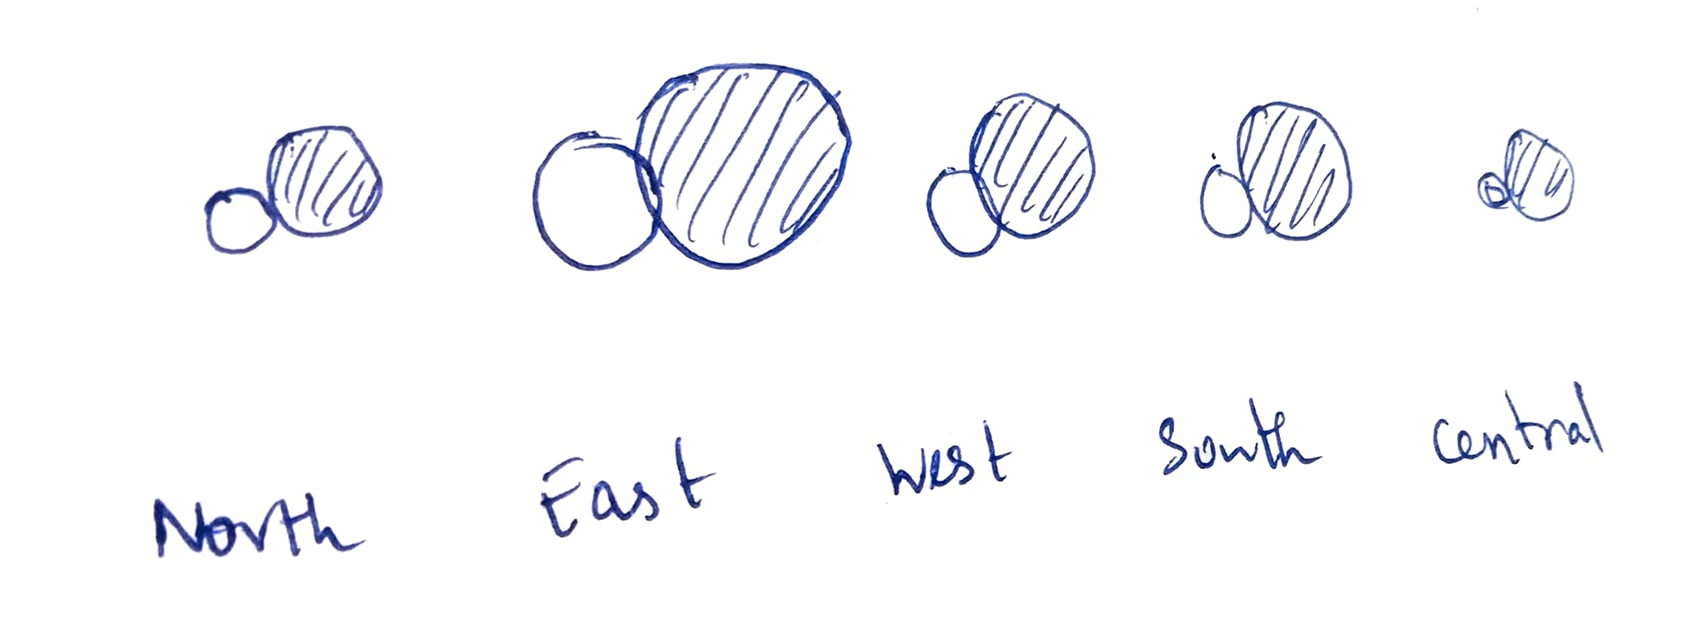 North East West South Central